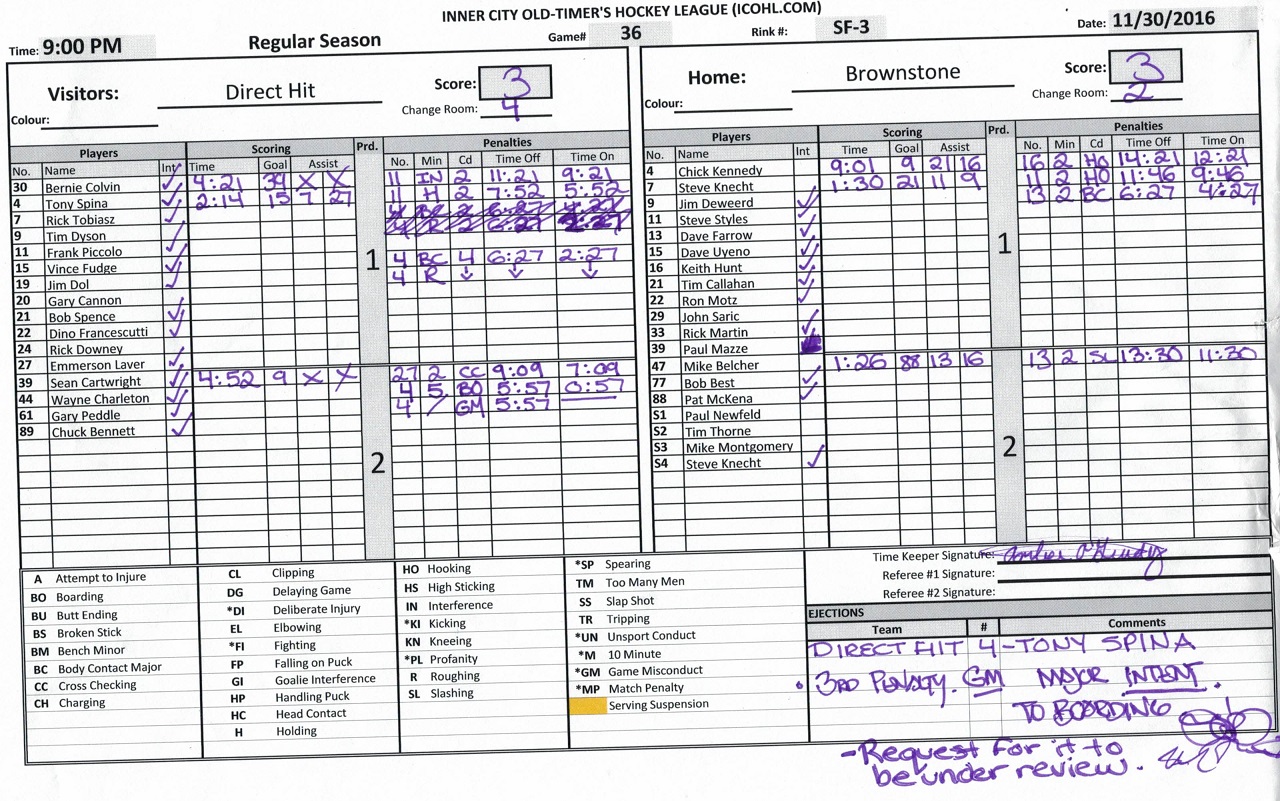 INNER CITY OLD-TIMER'S HOCKEY LEAGUE (ICOHL.COM)
Time: 9:00 PM Regular Season Game# 36 Rink #: SF-3 Date: 11/30/2016
Visitors: Direct Hit Score: 3
Colour: Change Room: 4
Home: Brownstone Score: 3
Colour: Change Room: 2
Players Scoring Prd. Penalties
No. Name Int Time Goal Assist No. Min Cd Time Off Time On
30 Bernie Colvin ✓ 4:21 39 X X 11 IN 2 11:21 9:21
4 Tony Spina ✓ 2:14 15 7 27 11 H 2 7:52 5:52
7 Rick Tobiasz ✓
9 Tim Dyson ✓
11 Frank Piccolo ✓ 1 4 BC 4 6:27 2:27
15 Vince Fudge ✓ 4 R ↓ ↓ ↓
19 Jim Dol ✓
20 Gary Cannon
21 Bob Spence ✓
22 Dino Francescutti ✓
24 Rick Downey
27 Emmerson Laver ✓
39 Sean Cartwright ✓ 4:52 9 X X 27 2 CC 9:09 7:09
44 Wayne Charleton ✓ 4 5 BO 5:57 0:57
61 Gary Peddle ✓ 4 / GM 5:57
89 Chuck Bennett ✓
2
Players Scoring Prd. Penalties
No. Name Int Time Goal Assist No. Min Cd Time Off Time On
4 Chick Kennedy 9:01 9 21 16 16 2 HO 14:21 12:21
7 Steve Knecht 1:30 21 11 9 11 2 HO 11:46 9:46
9 Jim Deweerd ✓ 13 2 BC 6:27 4:27
11 Steve Styles ✓
13 Dave Farrow ✓
15 Dave Uyeno ✓ 1
16 Keith Hunt ✓
21 Tim Callahan ✓
22 Ron Motz ✓
29 John Saric
33 Rick Martin ✓
39 Paul Mazze
47 Mike Belcher 1:26 88 13 16 13 2 SL 13:30 11:30
77 Bob Best ✓
88 Pat McKena ✓
S1 Paul Newfeld
S2 Tim Thorne
S3 Mike Montgomery 2
S4 Steve Knecht ✓
A Attempt to Injure
BO Boarding
BU Butt Ending
BS Broken Stick
BM Bench Minor
BC Body Contact Major
CC Cross Checking
CH Charging
CL Clipping
DG Delaying Game
*DI Deliberate Injury
EL Elbowing
*FI Fighting
FP Falling on Puck
GI Goalie Interference
HP Handling Puck
HC Head Contact
H Holding
HO Hooking
HS High Sticking
IN Interference
*KI Kicking
KN Kneeing
*PL Profanity
R Roughing
SL Slashing
*SP Spearing
TM Too Many Men
SS Slap Shot
TR Tripping
*UN Unsport Conduct
*M 10 Minute
*GM Game Misconduct
*MP Match Penalty
Serving Suspension
Time Keeper Signature:
Referee #1 Signature:
Referee #2 Signature:
EJECTIONS
Team # Comments
DIRECT HIT 4-TONY SPINA
3RD PENALTY. GM MAJOR INTENT.
TO BOARDING
-Request for it to
be under review.